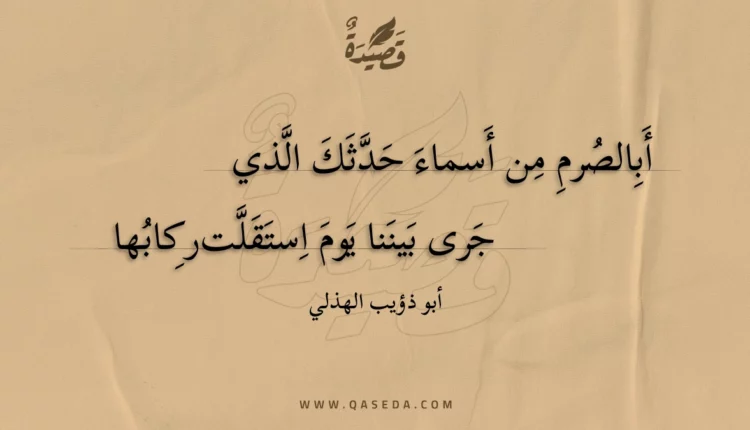 قَصِيدَةٌ
أَبِالصُرمِ مِن أَسماءَ حَدَّثَكَ الَّذي
جَرى بَينَنا يَومَ اِستَقَلَّت رِكابُها
أبو ذؤيب الهذلي
WWW.QASEDA.COM